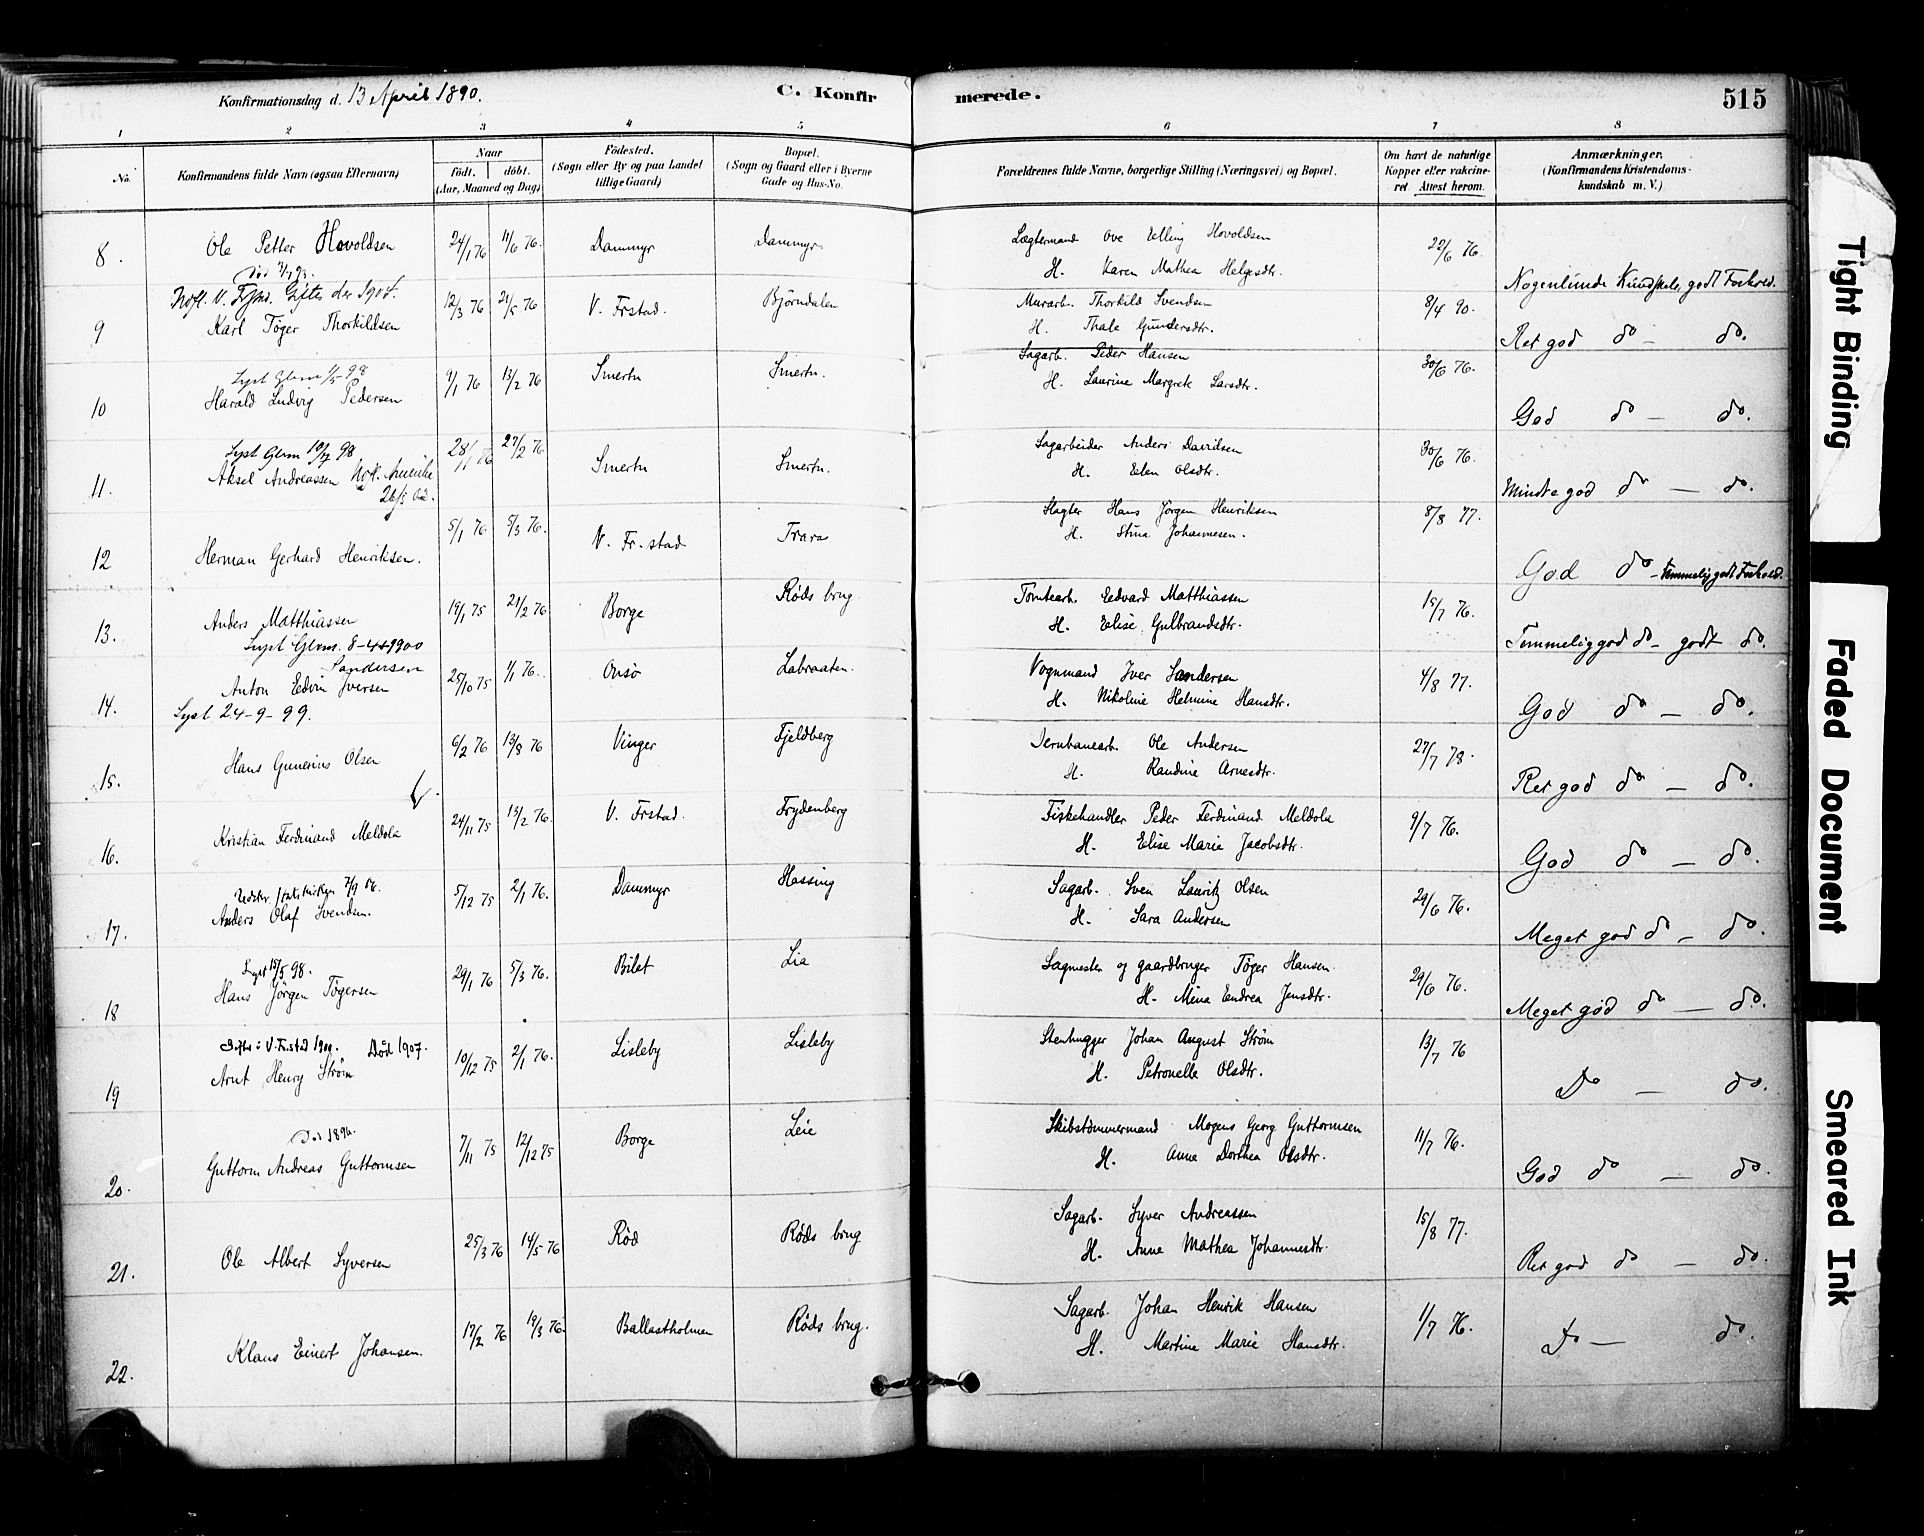 Konfirmationsdag d. 13 April 1890.
C. Konfirmerede.
515
1 2 3 4 5 6 7 8
No.
Konfirmandens fulde Navn (ogsaa Efternavn)
Naar
Födt. döbt.
(Aar, Maaned og Dag)
Födested.
(Sogn eller By og paa Landet
tillige Gaard)
Bopæl.
(Sogn og Gaard eller i Byerne
Gade og Hus-No.
Forældrenes fulde Navne, borgerlige Stilling (Næringsvei) og Bopæl.
Om havt de naturlige
Kopper eller vakcine-
ret. Attest herom.
Anmærkninger.
(Konfirmandens Kristendoms-
kundskab m. V.)
8. Ole Petter Hovoldsen 24/1 76 11/6 76. Dammyr Dammyr Lægtermand Ove Elling Hovoldsen 22/6 76.
H. Karen Mathea Helgesdtr. Nogenlunde Kundskab, godt Forhold.
Gifter der 1904.
9 Karl Töger Thorkildsen 12/3 76 21/5 76 V. Frstad. Björndalen Murarb. Thorkild Svendsen 8/4 90.
H. Thale Gundersdtr. Ret god do - do.
Lyst Glem 1/5 98
10 Harald Ludvig Pedersen 9/1 76 13/2 76 Smertu Smertu. Sagarb. Peder Hansen 30/6 76.
H. Laurine Margrete Larsdtr. God do - do.
Lyst Glem 10/7 98
11. Aksel Andreassen 28/1 76 27/2 76 Smertu Smertu. Sagarbeider Anders Davidsen 30/6 76.
26/5 02.
H. Elen Olsdtr. Mindre god do - do.
12 Herman Gerhard Henriksen. 5/1 76 5/3 76. V. Fr.stad Trara Slagter Hans Jörgen Henriksen 8/8 77.
H. Stina Johannesen. God do - temmelig godt Forhold.
13. Anders Matthiassen 19/1 75 21/2 76 Borge Röds brug Tomtearb. Edvard Matthiassen 15/7 76.
H. Elise Gulbrandsdtr. Temmelig god do - godt do.
Lyst Glem. 8-4-1900
Sandersen
14. Anton Edvin Iversen 25/10 75 1/1 76. Onsö Labraaten. Vognmand Iver Sandersen 4/8 77.
H. Nikoline Helmine Hansdtr. God do - do.
Lyst 24-9-99.
15. Hans Gunerius Olsen 6/2 76 13/8 76 Vinger Fjeldberg Jernbanearb. Ole Andersen 27/7 78.
H. Randine Arnesdtr. Ret god do - do.
16. Kristian Ferdinand Meldola 24/11 75 13/2 76. V. Frstad. Frydenberg Fiskehandler Peder Ferdinand Meldola 9/7 76.
H. Elise Marie Jacobsdtr. God do - do.
Udstr. statskirken 7/9 06.
17. Anders Olaf Svendsen. 5/12 75 2/1 76. Dammyr Hassing Sagarb. Sven Lauritz Olsen 29/6 76.
H. Sara Andersen Meget god do - do.
Lyst 15/5 98.
18 Hans Jörgen Tögersen 29/1 76 5/3 76. Bilet Lia Sagmester og gaardbruger Töger Hansen 29/6 76.
H. Mina Endrea Jensdtr. Meget god do - do.
Gifter i V. Fr.stad 1900. Död 1907.
19 Arnt Henry Ström 10/12 75 2/1 76. Lisleby Lisleby Stenhugger Johan August Ström 13/7 76
H. Petronelle Olsdtr. Do - do.
Död 1896.
20. Guttorm Andreas Guttormsen 7/11 75 12/12 75 Borge Leie Skibstömmermand Mogens Georg Guttormsen 11/7 76.
H. Anne Dorthea Olsdtr. God do - do.
21. Ole Albert Syversen 25/3 76 14/5 76 Röd Röds brug Sagarb. Syver Andreassen 15/8 77.
H. Anne Mathea Johannesdtr. Ret god do - do.
22. Klaus Einert Johansen. 17/2 76 19/3 76. Ballastholmen Röds brug. Sagarb. Johan Henrik Hansen 1/7 76.
H. Martine Marie Hansdtr. Do - do.
Tight Binding
Faded Document
Smeared Ink